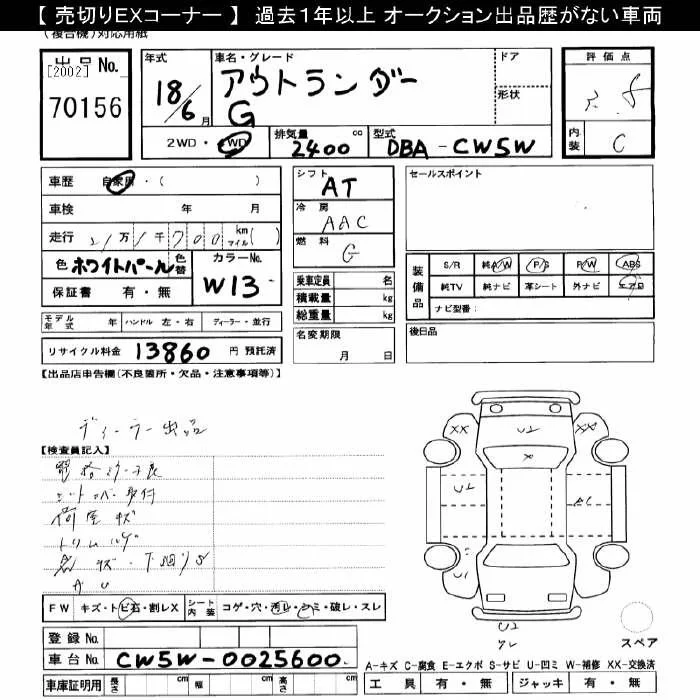 【 売切りEXコーナー 】 過去1年以上 オークション出品歴がない車両
(複合機)対応用紙
出品 No.
[2002]
70156
年式 18/6 月
車名・グレード アウトランダー
G
ドア
形状
評価点
内装 C
2WD・4WD
排気量 2400 cc
型式 DBA-CW5W
車歴 自家用・( )
車検 年 月
走行 万 千 700 km マイル ( )
色 ホワイトパール 色替
カラーNo. W13
保証書 有・無
シフト AT
冷房 AAC
燃料 G
乗車定員 名
積載量 kg
総重量 kg
名変期限
月 日
セールスポイント
装備品
S/R 純A/W P/S P/W ABS
純TV 純ナビ 革シート 外ナビ エアB
ナビ型番:
後日品
モデル年式 年 ハンドル 左・右 ディーラー・並行
リサイクル料金 13860 円 預託済
【出品店申告欄(不良箇所・欠品・注意事項等)】
ディーラー出品
【検査員記入】
荷室キズ
A U
FW キズ・トビ石・割レX
シート内装 コゲ・穴・汚レ・シミ・破レ・スレ
登録 No.
車台 No. CW5W-0025600
車庫証明用 長さ cm 幅 cm 高さ cm
XX
U2
XX
X
U2
U1
U2
スペア
A-キズ C-腐食 E-エクボ S-サビ U-凹ミ W-補修 XX-交換済
工具 有・無 ジャッキ 有・無